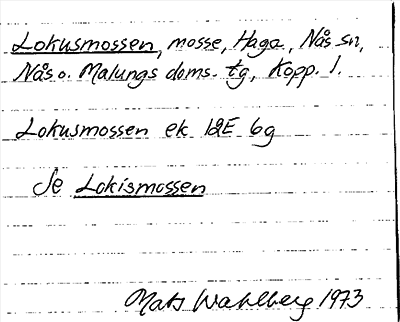 Lokusmossen, mosse, Haga, Nås sn,
Nås o. Malungs doms. tg, Kopp. l.
Lokusmossen ek 12E 6g
Se Lokismossen
Mats Wahlberg 1973